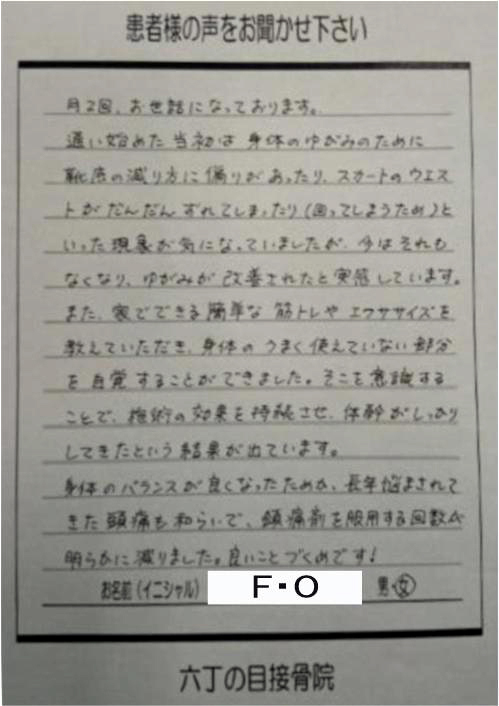 患者様の声をお聞かせ下さい
月2回、お世話になっております。
通い始めた当初は身体のゆがみのために
靴底の減り方に偏りがあったり、スカートのウエス
トがだんだんずれてしまったり(回ってしまうため)と
いった現象が気になっていましたが、今はそれも
なくなり、ゆがみが改善されたと実感しています。
また、家でできる簡単な筋トレやエクササイズを
教えていただき、身体のうまく使えていない部分
を自覚することができました。そこを意識する
ことで、施術の効果を持続させ、体幹がしっかり
してきたという結果が出ています。
身体のバランスが良くなったためか、長年悩まされて
きた頭痛も和らいで、頭痛剤を服用する回数が
明らかに減りました。良いことづくめです!
お名前(イニシャル) F・O 男・女
六丁の目接骨院